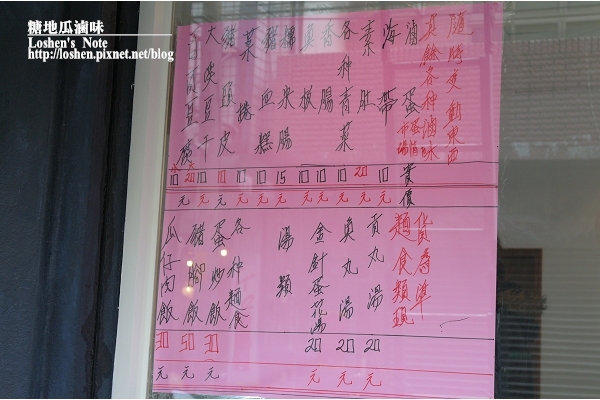 糖地瓜滷味
Loshen's Note
http://loshen.pixnet.net/blog
隨時變動東西
其餘各種滷味
滷蛋
海帶
素肚
各種青菜
香腸
米腸
豬血糕
菜捲
豆皮
大 豆干
賣價
10 20 10 10 10 15 10 10 10 20 10
元 元 元 元 元 元 元 元 元 元 元
貨為準
麵食類現
貢丸湯 20元
魚丸湯 20元
金針蛋花湯 20元
湯類
各種麵食
蛋炒飯 30元
豬腳飯 50元
瓜仔肉飯 30元